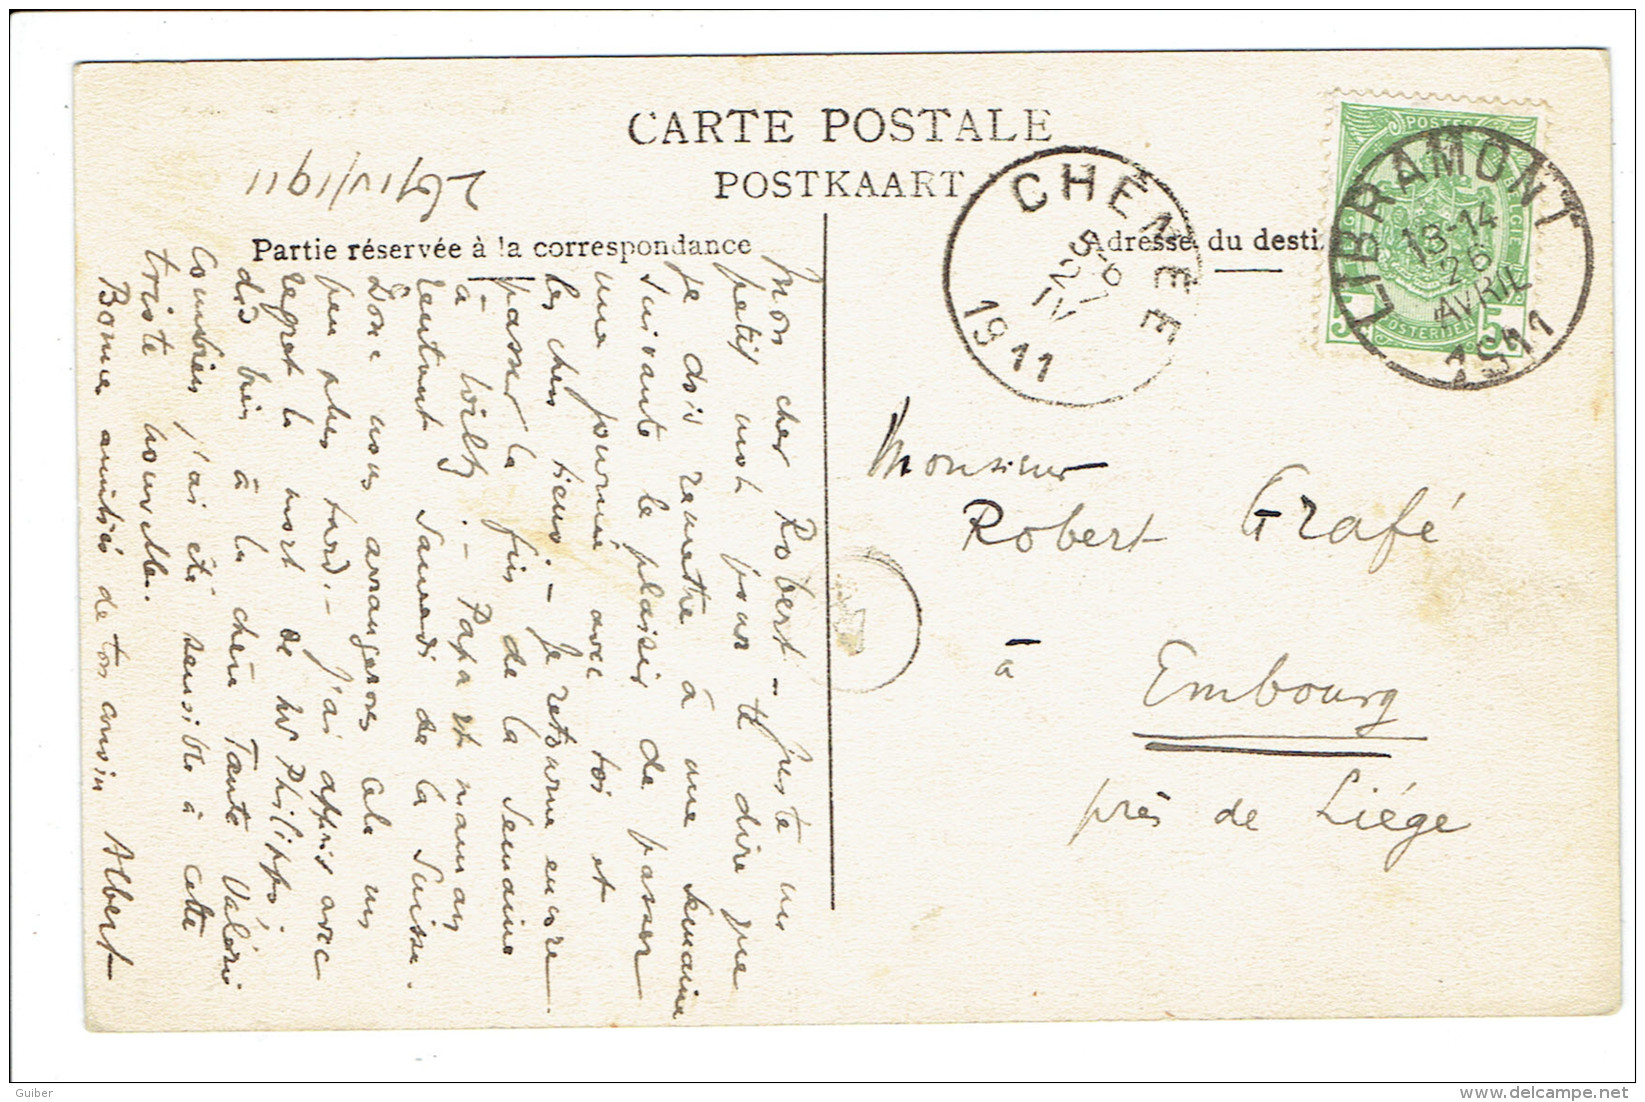 CARTE POSTALE
POSTKAART
Partie réservée à la correspondance
Adresse du desti
26/IV/1911
CHENEE
5-6
27
IV
1911
LIBRAMONT
13-14
26
AVRIL
1911
POSTES
BELGIE
POSTERIJEN
5 5
Monsieur
Robert Grafé
à
Embourg
près de Liége
Mon cher Robert – Juste un
petit mot pour te dire que
je dois remettre à une semaine
suivante le plaisir de passer
une journée avec toi et
les chers tiens. – Je retourne encore
passer la fin de la semaine
à . – Papa et maman
rentrent Samedi de la Suisse.
Donc nous arrangerons cela un
peu plus tard. – J'ai appris avec
regret la mort de Mr Philippe;
dis bien à la chère Tante Valérie
combien j'ai été sensible à cette
triste nouvelle.
Bonnes amitiés de ton cousin Albert
Guiber
www.delcampe.net